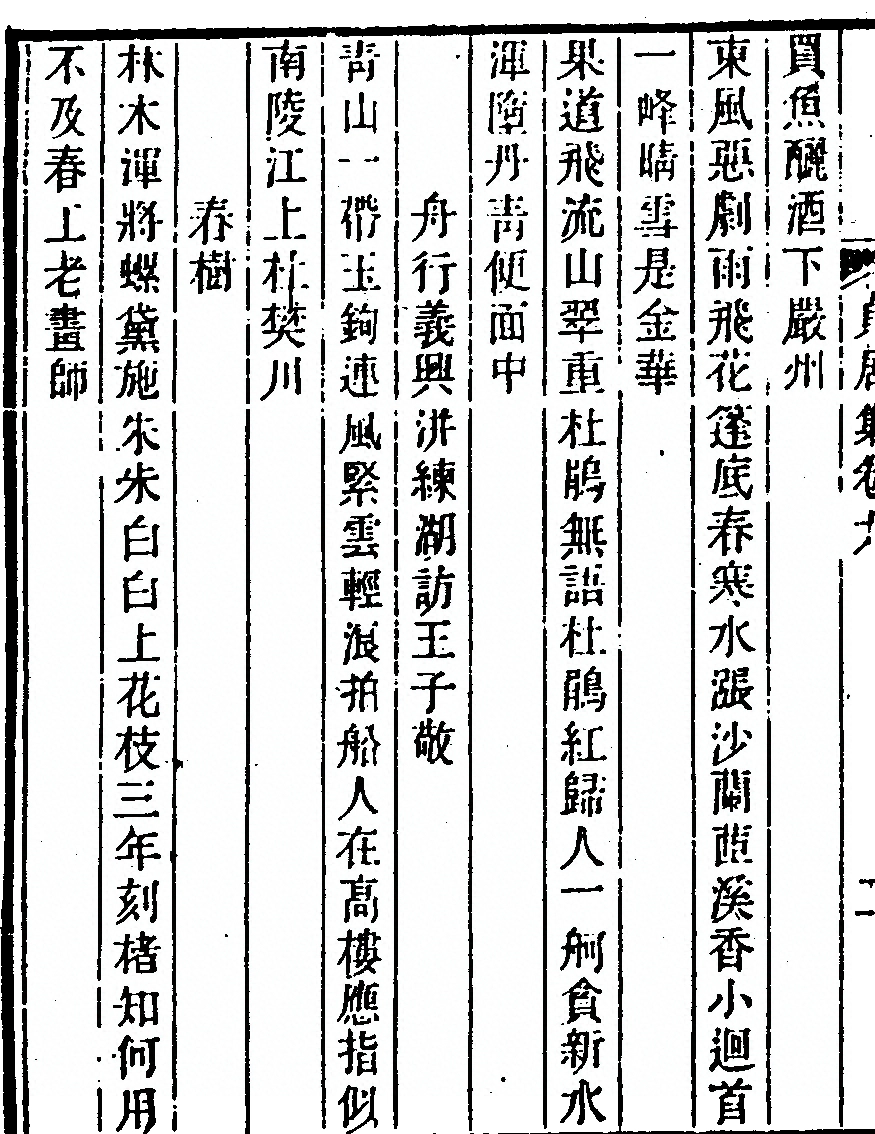 買魚釃酒下嚴州
東風惡劇雨飛花篷底春寒水漲沙蘭茝溪香小迴首
一峰晴雪是金華
果道飛流山翠重杜鵑無語杜鵑紅歸人一舸貪新水
渾墮丹青便面中
舟行義興洴練湖訪王子敬
青山一帶玉鉤連風緊雲輕浪拍船人在高樓應指似
南陵江上杜樊川
春樹
林木渾將螺黛施朱朱白白上花枝三年刻楮知何用
不及春工老畫師